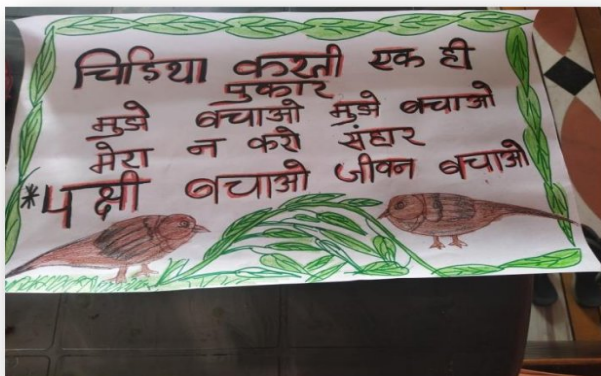 चिडिया करती एक ही
पुकार
मुझे बचाओ मुझे बचाओ
मेरा न करो संहार
*पक्षी बचाओ जीवन बचाओ